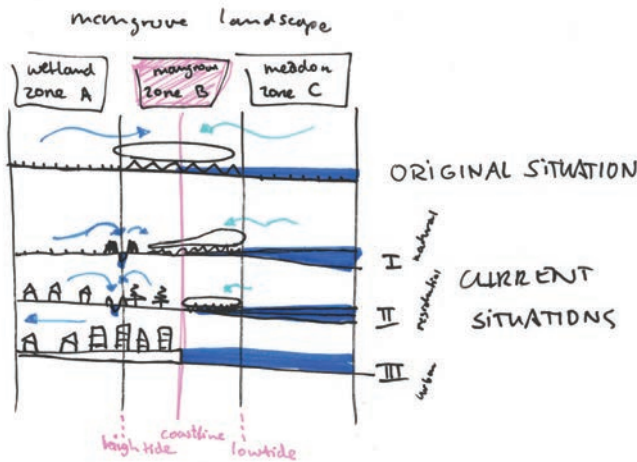 mangrove landscape
wetland zone A
mangrove zone B
meddon zone C
ORIGINAL SITUATION
I natural
II residential
III urban
CURRENT SITUATIONS
hightide
coastline
lowtide